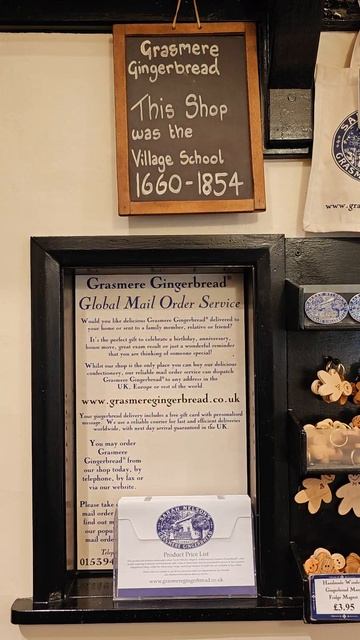 Grasmere
Gingerbread
This Shop
was the
Village School
1660-1854
Grasmere Gingerbread®
Global Mail Order Service
Would you like delicious Grasmere Gingerbread® delivered to
your home or sent to a family member, relative or friend?
It's the perfect gift to celebrate a birthday, anniversary,
house move, great exam result or just a wonderful reminder
that you are thinking of someone special!
Whilst our shop is the only place you can buy our delicious
confectionery, our reliable mail order service can dispatch
Grasmere Gingerbread® to any address in the
UK, Europe or rest of the world
www.grasmeregingerbread.co.uk
Your gingerbread delivery includes a free gift card with personalised
message. We use a reliable courier for fast and efficient deliveries
worldwide, with next day arrival guaranteed in the UK
You may order
Grasmere
Gingerbread® from
our shop today, by
telephone, by fax or
via our website.
Please take
mail order
find out m
our popu
mail orde
015394
SARAH NELSON'S
GRASMERE GINGERBREAD
Product Price List
www.grasmeregingerbread.co.uk
www.gra
Handmade Wooden
Gingerbread Man
Fridge Magnet
£3.95